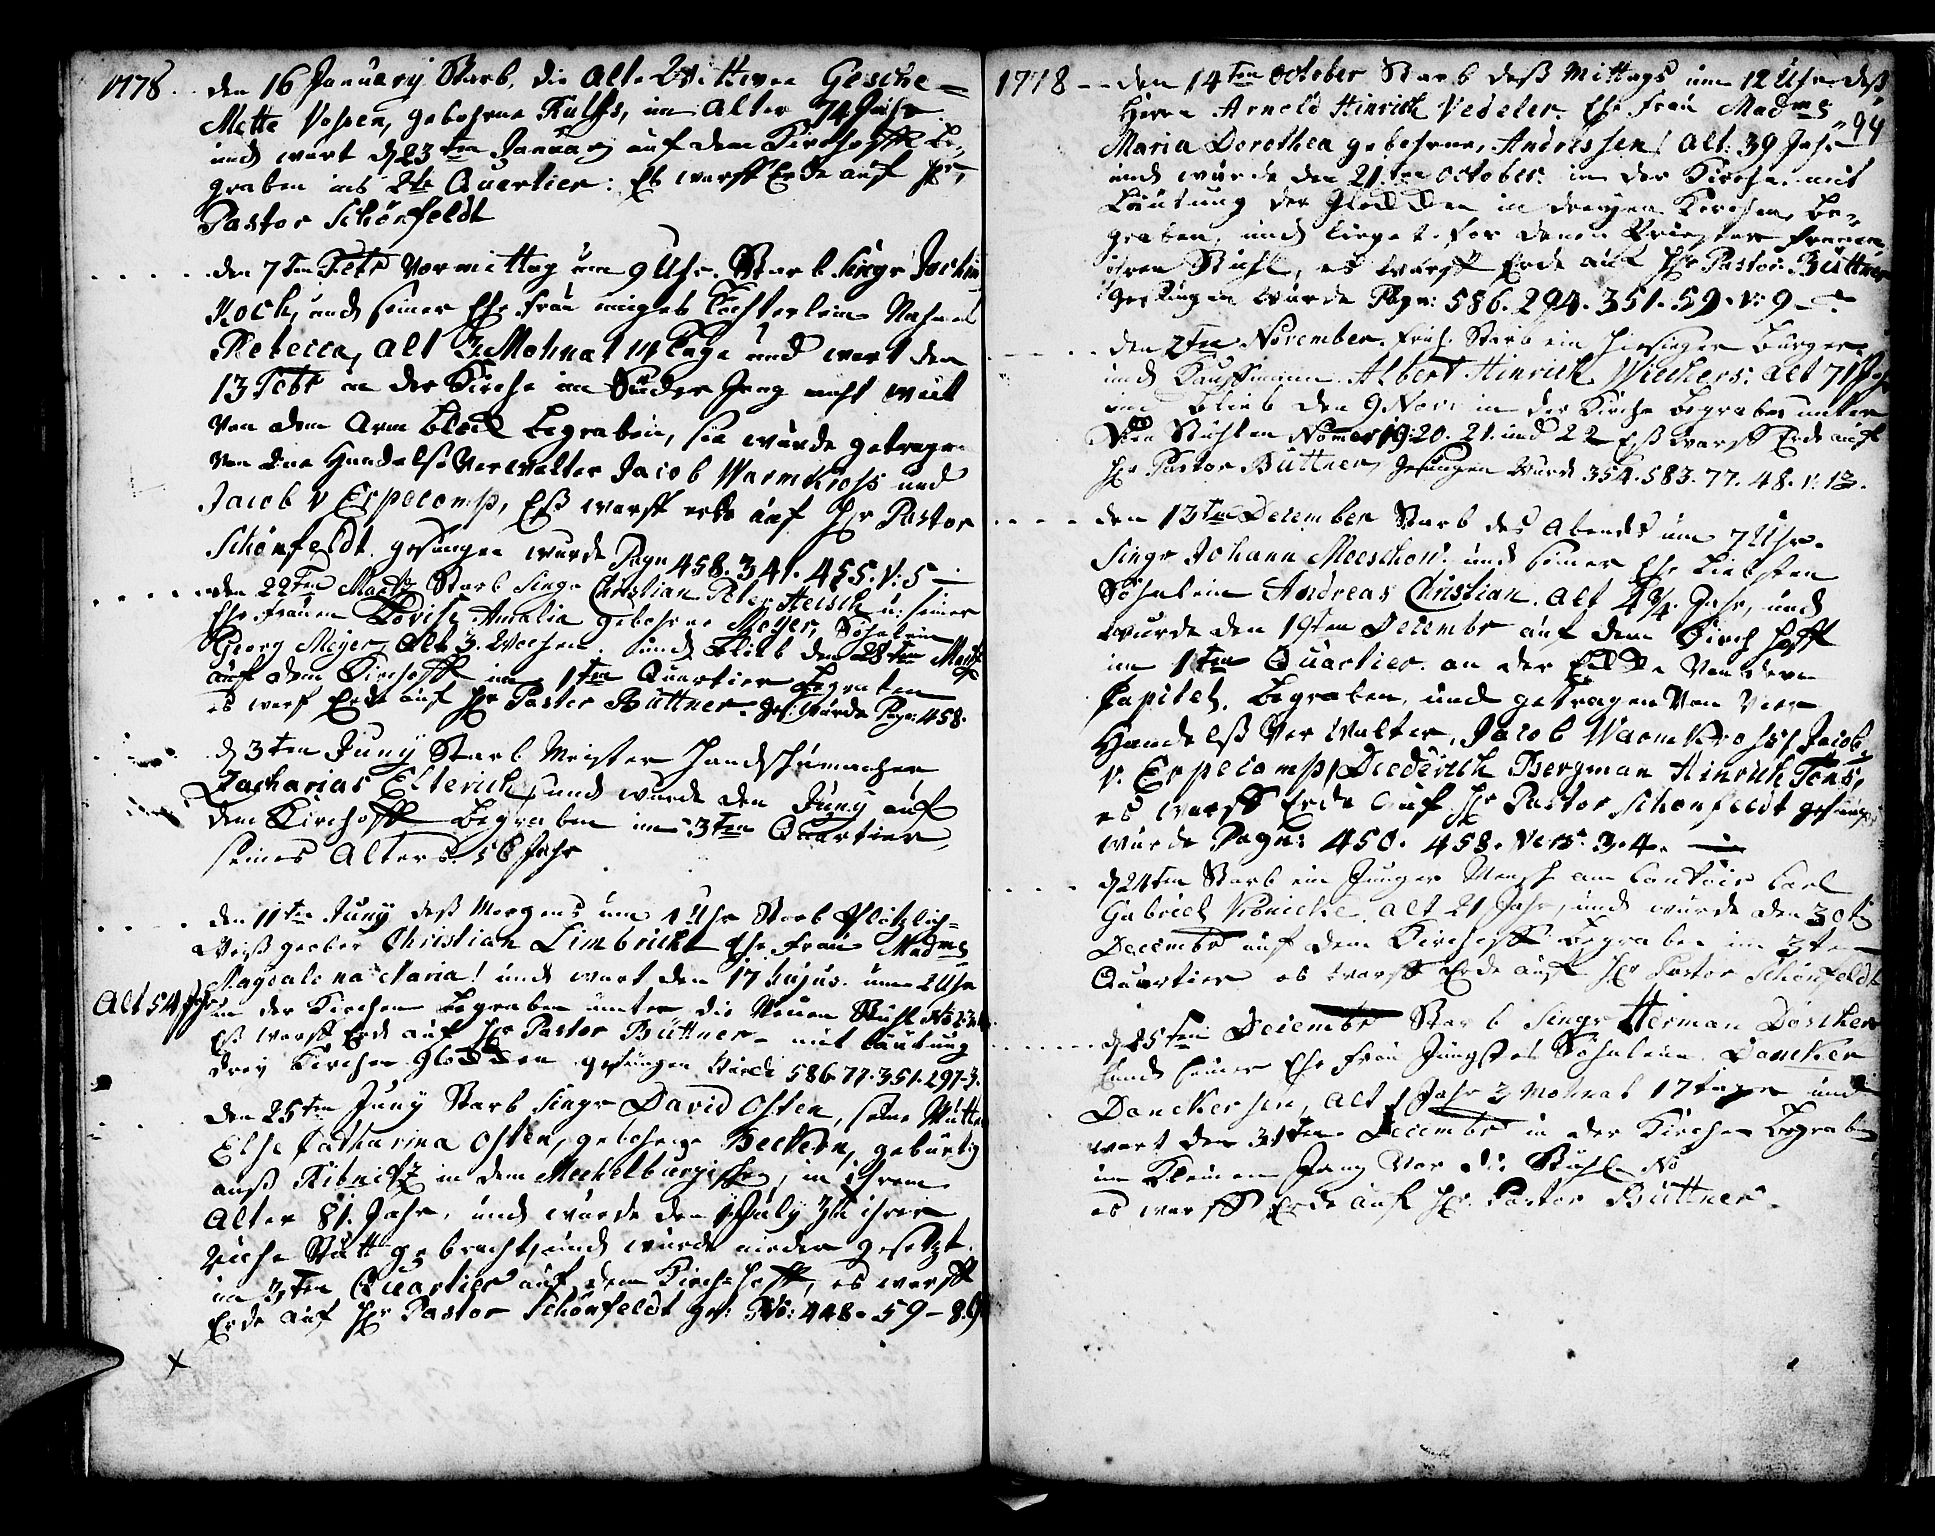 1778. den 16 January Starb, die Alte Wittwee Gesche=
Mette Vossen, gebohrne Kulfs, im Alter 74 Jahr
und wart d 23ten January auf dem Kirchoffe Be-
graben ins 2te Quartier: Es warff Erde auf Hr,
Pastor Schönfeldt
den 7ten Febr Vormittag um 9 Uhr. Starb Singr Jochim
Koch, und seiner Ehe frau einziges Töchterlein Nahmes
Rebecca, Alt 3 Mohnat 14 Tage und wart den
13 Febr in der Kirche im Süder Gang nicht weit
Von dem Arm Block Begraben, sie wurde getragen
Von die Handelsß Verwalter Jacob Warmkross und
Jacob v Especomp, Eß warff erde auf Hr Pastor
Schönfeldt. gesungen wurde Pagn 458. 341. 455. V: 5 —
den 22ten Martz Starb Singr Christian Peter Heisch u: seiner
Ehe frauen Lovise Amalia gebohrne Meyer, Söhnlein
Georg Meyer, Alt 3. Wochen. und Blieb den 28ten Martz
auf dem Kirchoff im 1ten Quartier Begraben
es warf Erde auf Hr Pastor Büttner. ges: wurde Pagn: 458.
d 3ten Juny Starb Meister Handschumacher
Zacharias Elterich, und wurde den Juny auf
dem Kirchoff Begraben im 3ten Quartier,
seines Alters. 56 Jahr
den 11ten Juny deß Morgens um 1 Uhr Starb Plötzlich=
Weißgerber Christian Limbricht Ehe frau Madms
Magdalena Maria! und wart den 17 hujus. um 2 Uhr
Alt 54 Jahr in der Kirchen Begraben unter die Neuen Stuhl No
Eß warff Erde auf Hr Pastor Büttner - mit Lautung
drey Kirchen Glocken gesungen Wurde 586. 77. 351. 297-3.
den 25ten Juny Starb Singr David Osten, seine Mutter
Else Catharina Osten, gebohrne Beckern, gebürtig
auß Ribnitz in dem Meckelburgischen, in ihrem
Alter 81. Jahr, und wurde den 1 July zu ihrer
Ruhe Statt gebracht, und wurde nieder gesetzt.
im 3ten Quartier auf dem Kirchhoff, es warff
Erde auf Hr Pastor Schönfeldt ges: No: 448. 59 - 8.9
x
1778 -- den 14ten October Starb deß Mittags um 12 Uhr deß
Herrn Arnold Hinrich Vedeler. Ehe frau Madms
94
Maria Dorothea gebohrne, Andressen! Alt: 39 Jahr
und wurde den 21ten October in der Kirche mit
Läutung der Glocken in dreyen Kirchen Be-
graben, und lieget for denen Priester frauen
ihren Stuhl, es warff Erde auf Hr Pastor Büttner
Gesungen wurde Pagn: 586. 294. 351. 59. V: 9 —
den 2ten November. früh. Starb ein hiesiger Bürger
und Kauffmann Albert Hinrich Wiechers: Alt 71 Jahr
und Blieb den 9 Nov: in der Kirche Begraben unter
den Stuhlen Nomer 19. 20. 21. und 22 Eß warff Erde auf
Hr Pastor Büttner, gesungen Wurde 354. 583. 77. 48. V: 13.
den 13ten December Starb des Abends um 7 Uhr.
Singr Johann Moeschow. und seiner Ehe Liebsten
Söhnlein Andreas Christian. Alt 4¾ Jahr, und
wurde den 19ten Decembr auf dem Kirch Hoff
im 1ten Quartier. an der Ecke Von dem
Capitel. Begraben, und getragen Von Vier
Handelß Verwalter, Jacob Warmkross, Jacob
v. Especomp, Diederich Bergman Hinrich Tons,
es warff Erde Auf Hr Pastor Schönfeldt gesungen
wurde Pagn: 450. 458. Vers: 3. 4. —
d 24ten Starb ein Junger Mensch am Contoir Carl
Gabriel Krönicke. Alt 21 Jahr, und wurde den 30t
Decembr auf dem Kirchoff Begraben im 3ten
Quartier es warff Erde auf Hr Pastor Schönfeldt
d 25ten Decembr Starb Singr Herman Döscher
und seiner Ehe frau Jüngstes Söhnlein. Doncker
Donckersen, Alt 1 Jahr 3 Mohnat 17 tage und
wart den 31ten Decembr in der Kirchen Begraben
im Kleinen Gang Vor die Stuhl No
es warff Erde auf Hr. Pastor Büttner.